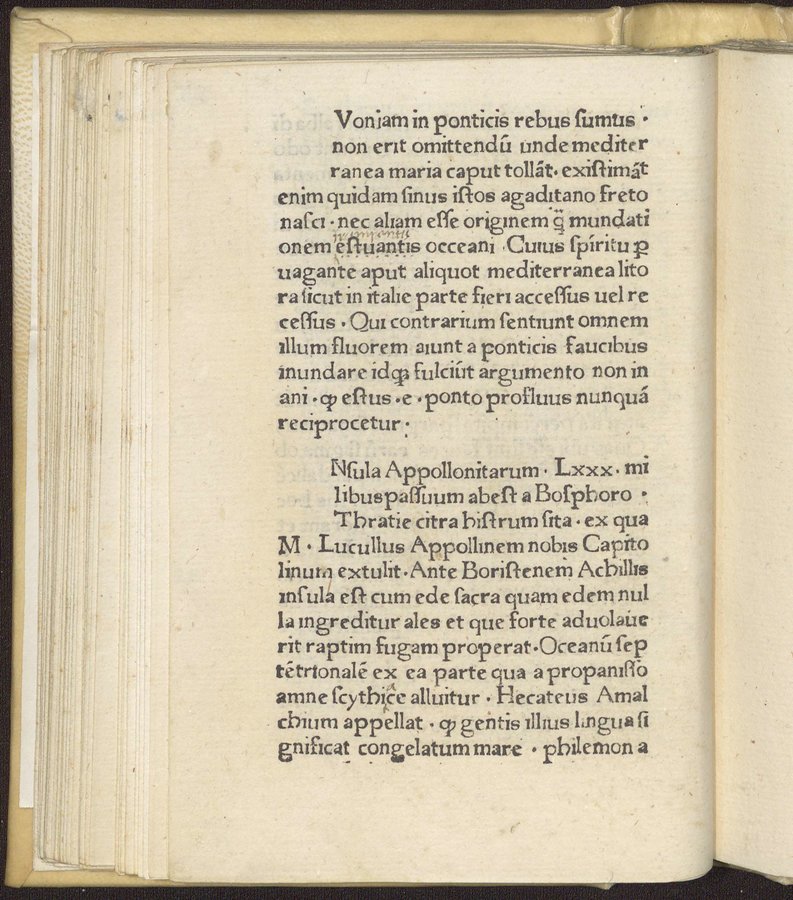 Voniam in ponticis rebus sumus ·
non erit omittendū unde mediter
ranea maria caput tollāt · existimāt
enim quidam sinus istos agaditano freto
nasci · nec aliam esse originem q̄ mundati
onem estuantis occeani · Cuius spiritu ꝑ
uagante aput aliquot mediterranea lito
ra sicut in italie parte fieri accessus uel re
cessus · Qui contrarium sentiunt omnem
illum fluorem aiunt a ponticis faucibus
inundare idqꝫ fulciūt argumento non in
ani · ꝙ estus · e · ponto profluus nunquā
reciprocetur ·
Nsula Appollonitarum · Lxxx · mi
libus passuum abest a Bosphoro ·
Thratie citra histrum sita · ex qua
M · Lucullus Appollinem nobis Capito
linum extulit · Ante Boristenem Achillis
insula est cum ede sacra quam edem nul
la ingreditur ales et que forte aduolaue
rit raptim fugam properat · Oceanū sep
tētrionalē ex ea parte qua a propanisso
amne scythice alluitur · Hecateus Amal
chium appellat · ꝙ gentis illius lingua si
gnificat congelatum mare · philemon a